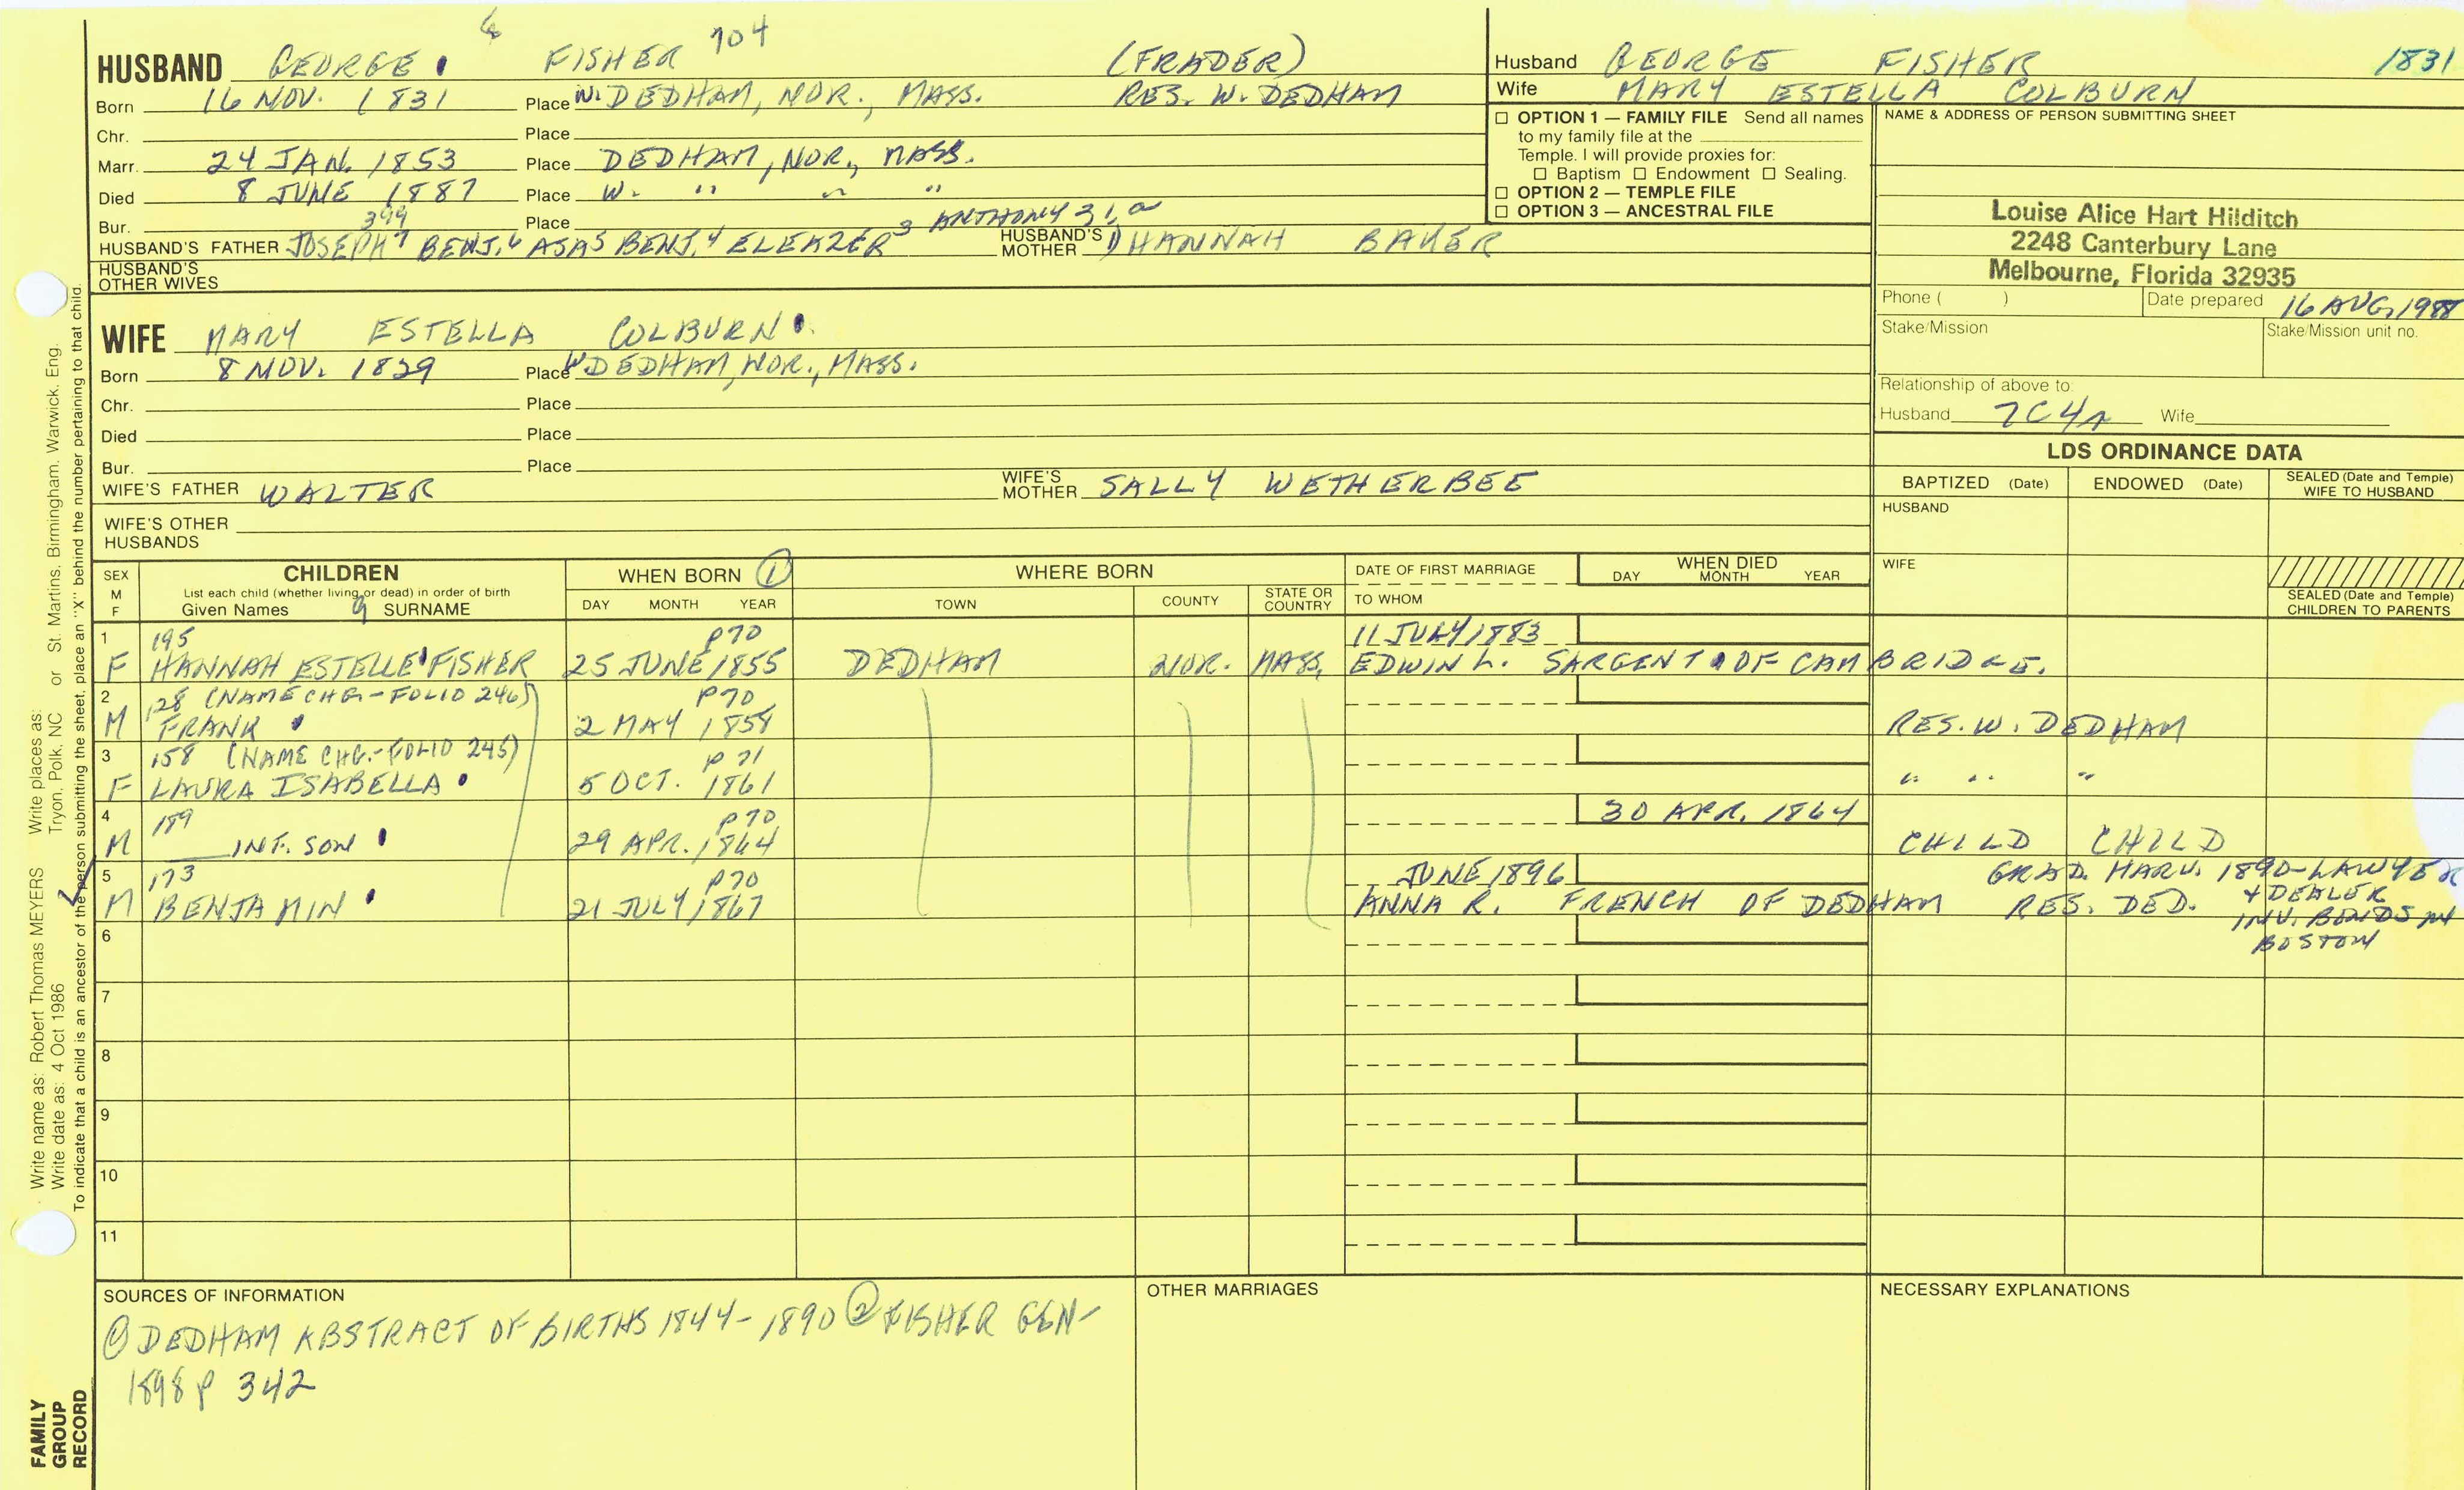 HUSBAND GEORGE 6 FISHER 704 (FRADER)
Born 16 NOV. 1831 Place W. DEDHAM, NOR., MASS. RES. W. DEDHAM
Chr. Place
Marr. 24 JAN. 1853 Place DEDHAM, NOR., MASS.
Died 8 JUNE 1887 Place W. " " "
Bur. Place
399
HUSBAND'S FATHER JOSEPH 7 BENJ. 6 ASA 5 BENJ. 4 ELEAZER 3 ANTHONY 2, 1, a HUSBAND'S MOTHER 1) HANNAH BAKER
HUSBAND'S OTHER WIVES
WIFE MARY ESTELLA COLBURN
Born 8 NOV. 1829 Place W DEDHAM, NOR., MASS.
Chr. Place
Died Place
Bur. Place
WIFE'S FATHER WALTER WIFE'S MOTHER SALLY WETHERBEE
WIFE'S OTHER HUSBANDS
Husband GEORGE FISHER 1831
Wife MARY ESTELLA COLBURN
☐ OPTION 1 — FAMILY FILE Send all names
to my family file at the
Temple. I will provide proxies for:
☐ Baptism ☐ Endowment ☐ Sealing.
☐ OPTION 2 — TEMPLE FILE
☐ OPTION 3 — ANCESTRAL FILE
NAME & ADDRESS OF PERSON SUBMITTING SHEET
Louise Alice Hart Hilditch
2248 Canterbury Lane
Melbourne, Florida 32935
Phone ( ) Date prepared 16 AUG, 1988
Stake/Mission Stake/Mission unit no.
Relationship of above to:
Husband 7C4R Wife
LDS ORDINANCE DATA
BAPTIZED (Date) ENDOWED (Date) SEALED (Date and Temple) WIFE TO HUSBAND
HUSBAND
WIFE
SEALED (Date and Temple) CHILDREN TO PARENTS
SEX M F CHILDREN WHEN BORN 1 WHERE BORN DATE OF FIRST MARRIAGE WHEN DIED
List each child (whether living or dead) in order of birth DAY MONTH YEAR
Given Names 9 SURNAME DAY MONTH YEAR TOWN COUNTY STATE OR COUNTRY TO WHOM
1 195 P70 11 JULY 1883
F HANNAH ESTELLE FISHER 25 JUNE 1855 DEDHAM NOR. MASS. EDWIN L. SARGENT OF CAMBRIDGE.
2 128 (NAME CHG.-FOLIO 246) P70
M FRANK 2 MAY 1858 RES. W. DEDHAM
3 158 (NAME CHG.-FOLIO 245) P 71
F LAURA ISABELLA 5 OCT. 1861 " " "
4 189 P70 30 APR. 1864
M ___ INF. SON 29 APR. 1864 CHILD CHILD
5 173 P70 JUNE 1896 GRAD. HARV. 1890-LAWYER
M BENJAMIN 21 JULY 1867 ANNA R. FRENCH OF DEDHAM RES. DED. + DEALER
INV. BONDS IN
BOSTON
6
7
8
9
10
11
SOURCES OF INFORMATION
① DEDHAM ABSTRACT OF BIRTHS 1844-1890 ② FISHER GEN-
1898 P 342
OTHER MARRIAGES
NECESSARY EXPLANATIONS
Write name as: Robert Thomas MEYERS Write places as: Tryon, Polk, NC or St. Martins, Birmingham, Warwick, Eng.
Write date as: 4 Oct 1986
To indicate that a child is an ancestor of the person submitting the sheet, place an "X" behind the number pertaining to that child.
FAMILY
GROUP
RECORD